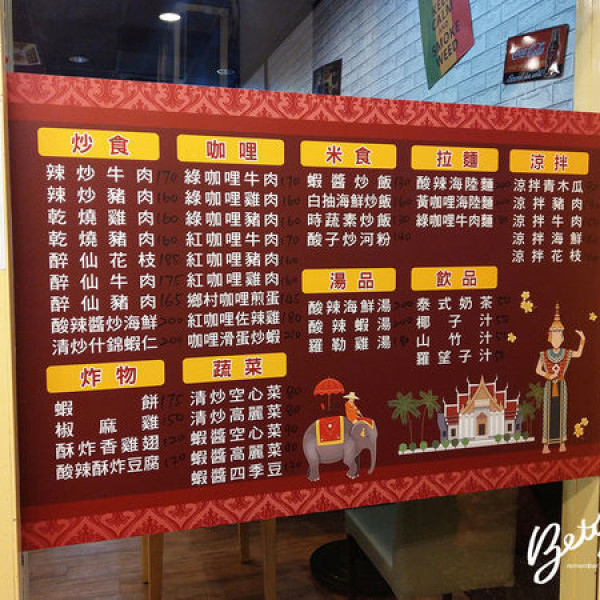 KEEP
CALM
SMOKE
WEED
Coca-Cola
炒食
辣炒牛肉 170
辣炒豬肉 160
乾燒雞肉 160
乾燒豬肉 160
醉仙花枝 185
醉仙牛肉 175
醉仙豬肉 165
酸辣醬炒海鮮 200
清炒什錦蝦仁 200
炸物
蝦餅 175
椒麻雞 150
酥炸香雞翅 120
酸辣酥炸豆腐 120
咖哩
綠咖哩牛肉 170
綠咖哩雞肉 160
綠咖哩豬肉 160
紅咖哩牛肉 170
紅咖哩豬肉 160
紅咖哩雞肉 160
鄉村咖哩煎蛋 145
紅咖哩佐辣雞 180
咖哩滑蛋炒蝦 210
蔬菜
清炒空心菜 80
清炒高麗菜 80
蝦醬空心菜 90
蝦醬高麗菜 90
蝦醬四季豆 120
米食
蝦醬炒飯 130
白抽海鮮炒飯 160
時蔬素炒飯 130
酸子炒河粉 140
湯品
酸辣海鮮湯 200
酸辣蝦湯 200
羅勒雞湯 180
拉麵
酸辣海陸麵
黃咖哩海陸麵
綠咖哩牛肉麵
飲品
泰式奶茶 50
椰子汁 50
山竹汁 50
羅望子汁 50
涼拌
涼拌青木瓜
涼拌豬肉
涼拌牛肉
涼拌海鮮
涼拌花枝